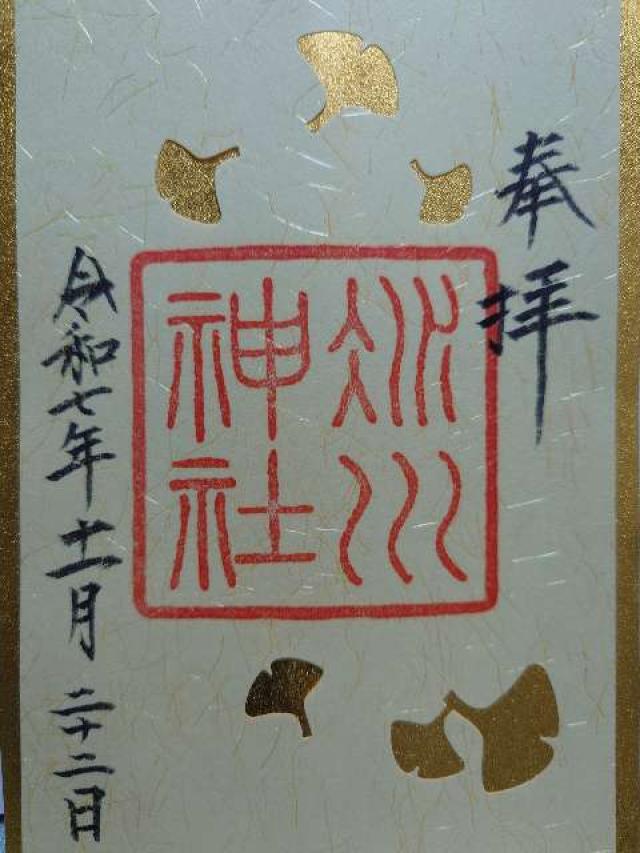 奉拝
氷川
神社
令和七年十一月二十二日